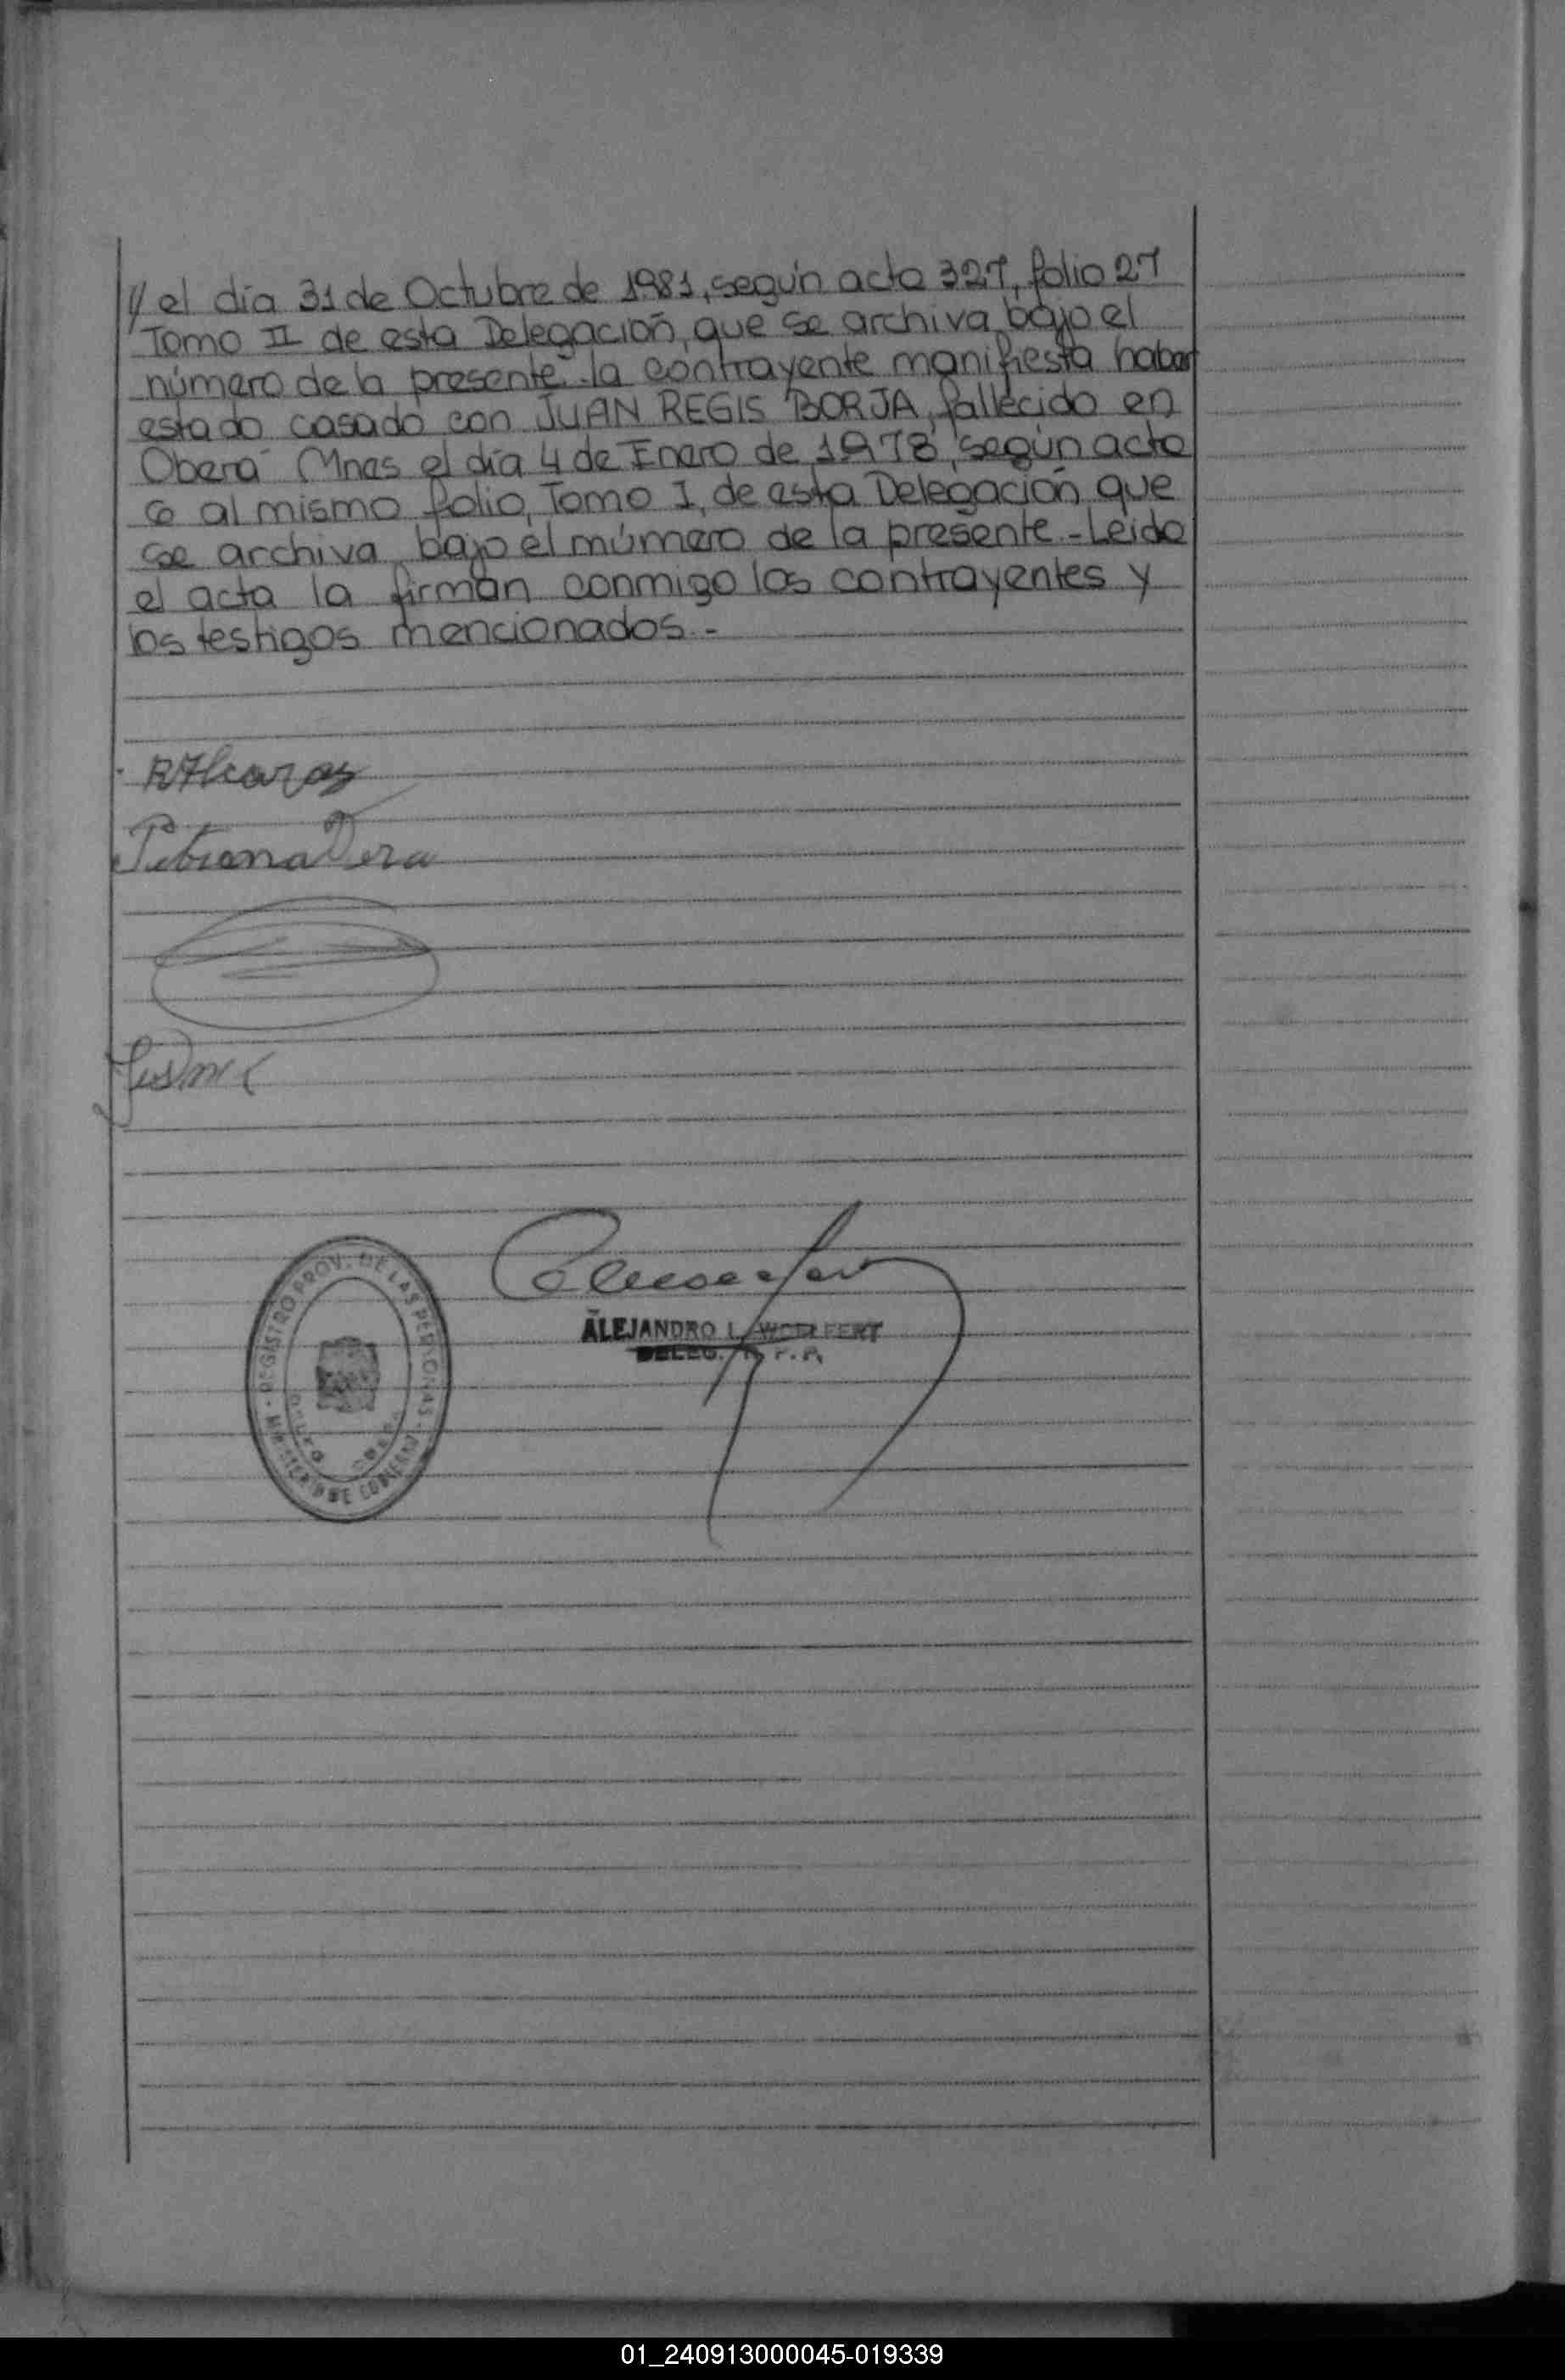 // el día 31 de Octubre de 1981, según acta 327, folio 27
Tomo II de esta Delegación, que se archiva bajo el
número de la presente. la contrayente manifiesta haber
estado casado con JUAN REGIS BORJA, fallecido en
Oberá Mnes el día 4 de Enero de 1978, según acta
6 al mismo folio, Tomo I, de esta Delegación que
se archiva bajo el número de la presente.- Leido
el acta la firman conmigo los contrayentes y
los testigos mencionados.-
RAlcaraz
Vera
ALEJANDRO L. WOLFERT
DELEG. R. P. P.
REGISTRO PROV. DE LAS PERSONAS
MINISTERIO DE GOBIERNO
01_240913000045-019339